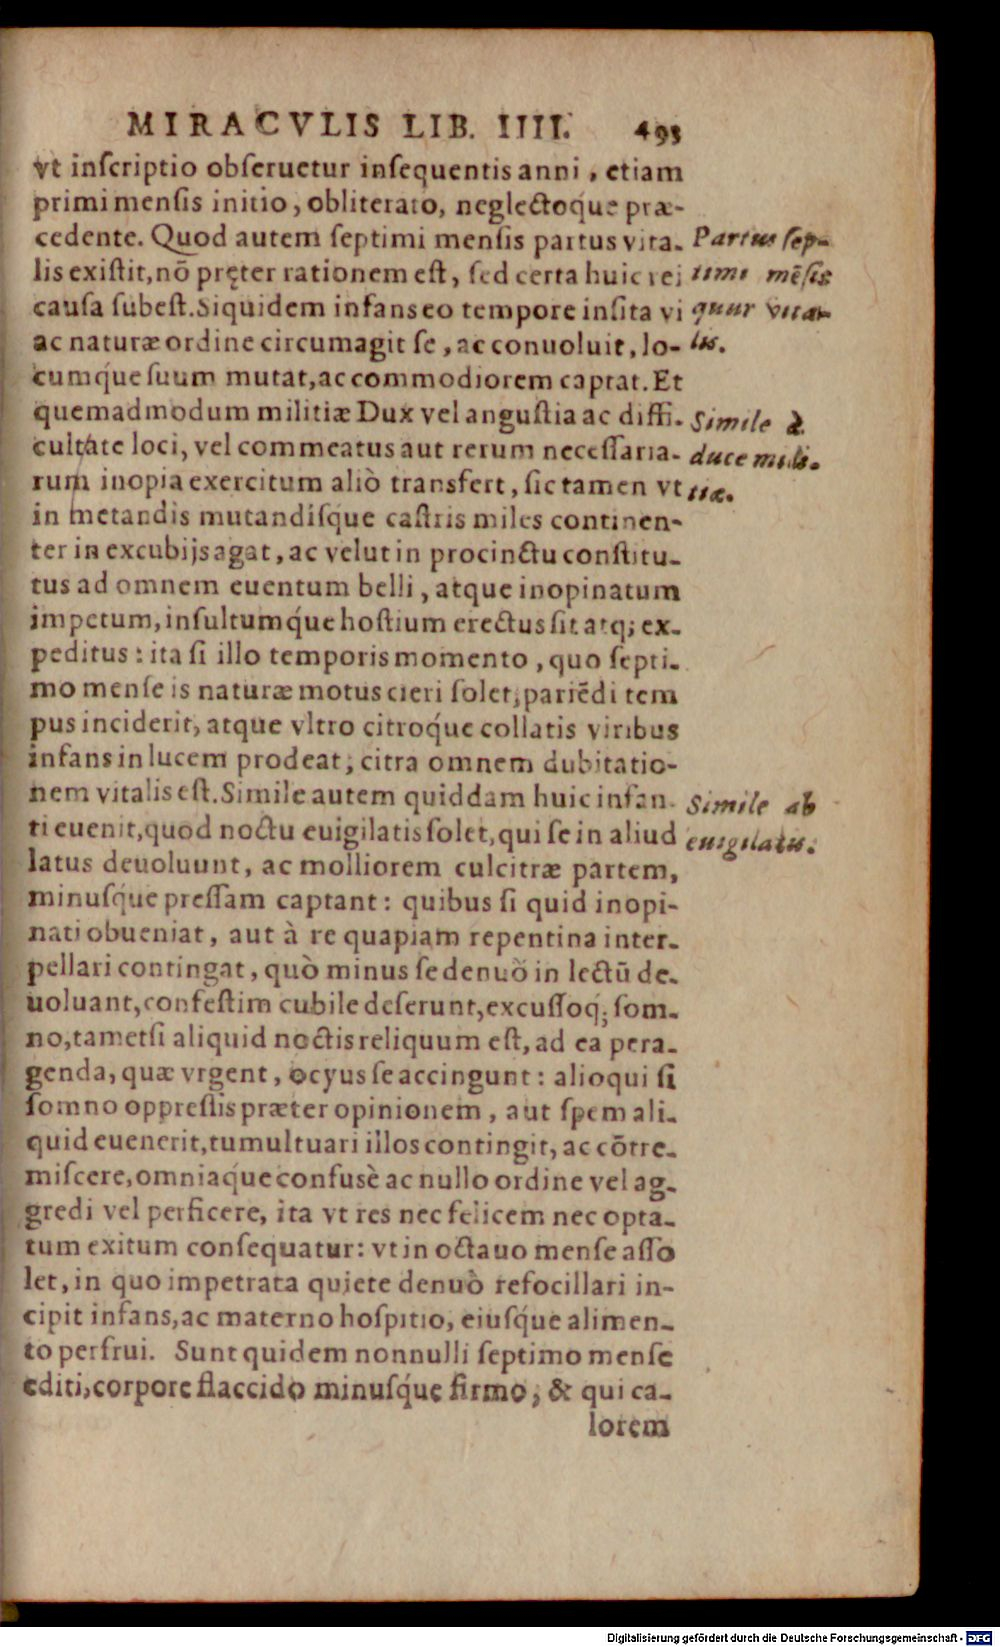 MIRACVLIS LIB. IIII. 495
vt inſcriptio obſeruetur inſequentis anni, etiam
primi menſis initio, obliterato, neglectoq́ue præ-
cedente. Quod autem ſeptimi menſis partus vita-
lis exiſtit, nō pręter rationem eſt, ſed certa huic rei
cauſa ſubeſt. Siquidem infans eo tempore inſita vi
ac naturæ ordine circumagit ſe, ac conuoluit, lo-
cumq́ue ſuum mutat, ac commodiorem captat. Et
quemadmodum militiæ Dux vel anguſtia ac diffi-
cultate loci, vel commeatus aut rerum neceſſaria-
rum inopia exercitum aliò transfert, ſic tamen vt
in metandis mutandiſque caſtris miles continen-
ter in excubijs agat, ac velut in procinctu conſtitu-
tus ad omnem euentum belli, atque inopinatum
impetum, inſultumq́ue hoſtium erectus ſit atq; ex-
peditus: ita ſi illo temporis momento, quo ſepti-
mo menſe is naturæ motus cieri ſolet, pariēdi tem
pus inciderit, atque vltro citroq́ue collatis viribus
infans in lucem prodeat, citra omnem dubitatio-
nem vitalis eſt. Simile autem quiddam huic infan-
ti euenit, quod noctu euigilatis ſolet, qui ſe in aliud
latus deuoluunt, ac molliorem culcitræ partem,
minuſq́ue preſſam captant: quibus ſi quid inopi-
nati obueniat, aut à re quapiam repentina inter-
pellari contingat, quò minus ſe denuò in lectū de-
uoluant, confeſtim cubile deſerunt, excuſſoq; ſom-
no, tametſi aliquid noctis reliquum eſt, ad ea pera-
genda, quæ vrgent, ocyus ſe accingunt: alioqui ſi
ſomno oppreſſis præter opinionem, aut ſpem ali-
quid euenerit, tumultuari illos contingit, ac cōtre-
miſcere, omniaq́ue confusè ac nullo ordine vel ag-
gredi vel perficere, ita vt res nec felicem nec opta-
tum exitum conſequatur: vt in octauo menſe aſſo
let, in quo impetrata quiete denuò refocillari in-
cipit infans, ac materno hoſpitio, eiuſq́ue alimen-
to perfrui. Sunt quidem nonnulli ſeptimo menſe
editi, corpore flaccido minuſq́ue firmo, & qui ca-
lorem
Partus ſep-
timi mēſis
quur vita-
lis.
Simile à
duce mili-
tiæ.
Simile ab
euigilatis.
Digitalisierung gefördert durch die Deutsche Forschungsgemeinschaft - DFG